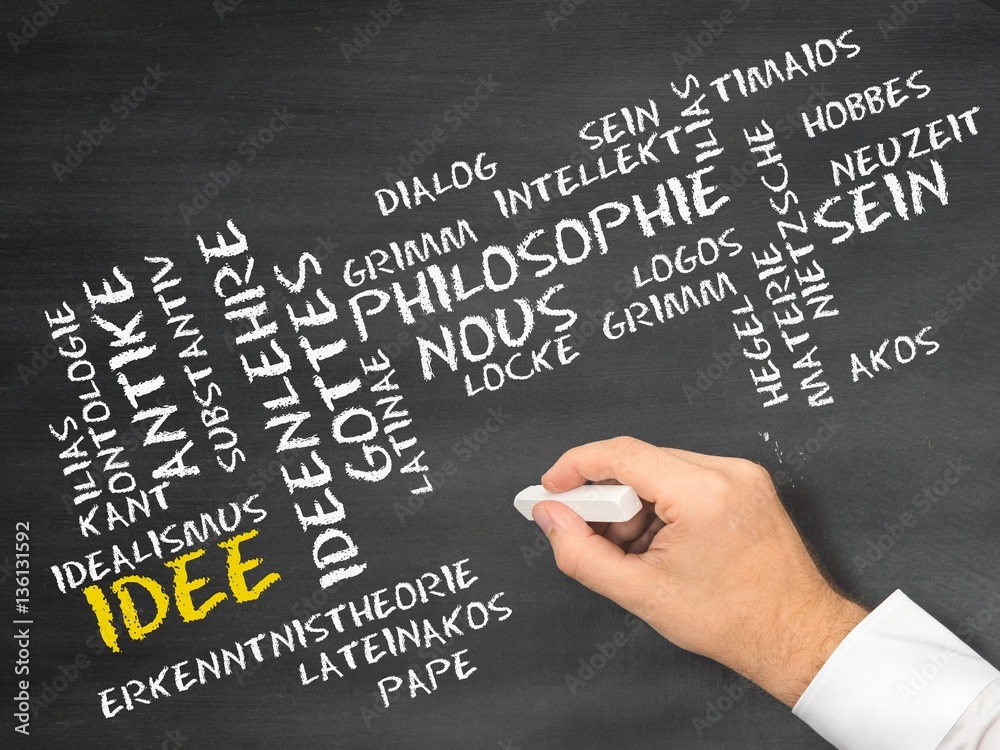 TIMAIOS
SEIN
ILIAS
HOBBES
INTELLEKT
DIALOG
NEUZEIT
PHILOSOPHIE
NIETZSCHE
SEIN
GRIMM
LOGOS
NOUS
GRIMM
LOCKE
HEGEL
MATERIE
AKOS
ILIAS
ONTOLOGIE
KANT
ANTIKE
SUBSTANTIV
IDEENLEHIRE
IDEENLEHTTES
GOTTES
LATINAE
IDEALISMUS
IDEE
ERKENNTNISTHEORIE
LATEINAKOS
PAPE
Adobe Stock | #136131592